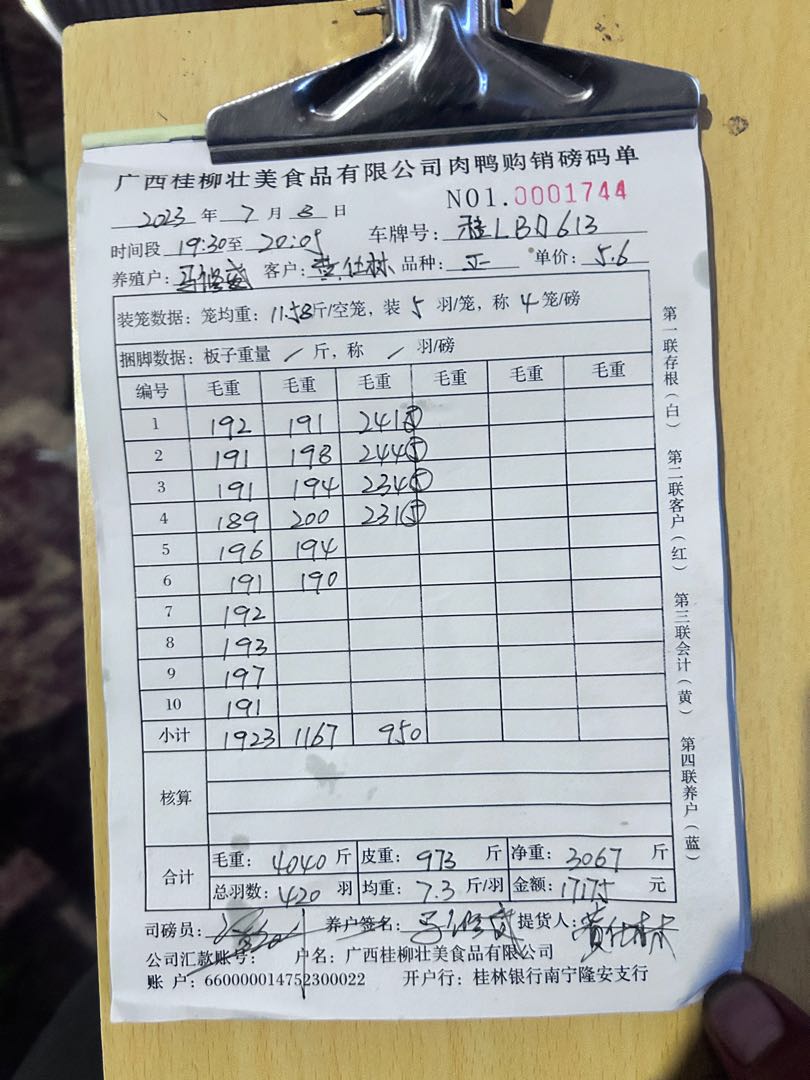 广西桂柳壮美食品有限公司肉鸭购销磅码单
NO1.0001744
2023 年 7 月 8 日
时间段 19:30至 20:05 车牌号: 桂LBD613
养殖户: 马修盛 客户: 黄仕林 品种: 正 单价: 5.6
装笼数据: 笼均重: 11.58斤/空笼, 装 5 羽/笼, 称 4 笼/磅
捆脚数据: 板子重量 / 斤, 称 / 羽/磅
编号 毛重 毛重 毛重 毛重 毛重 毛重
1 192 191 241⑤
2 191 198 244⑤
3 191 194 234⑤
4 189 200 231⑤
5 196 194
6 191 190
7 192
8 193
9 197
10 191
小计 1923 1167 950
核算
合计 毛重: 4040 斤 皮重: 973 斤 净重: 3067 斤
总羽数: 420 羽 均重: 7.3 斤/羽 金额: 17175 元
司磅员: 养户签名: 提货人: 黄仕林
公司汇款账号: 户名: 广西桂柳壮美食品有限公司
账 户: 660000014752300022 开户行: 桂林银行南宁隆安支行
第一联存根(白) 第二联客户(红) 第三联会计(黄) 第四联养户(蓝)